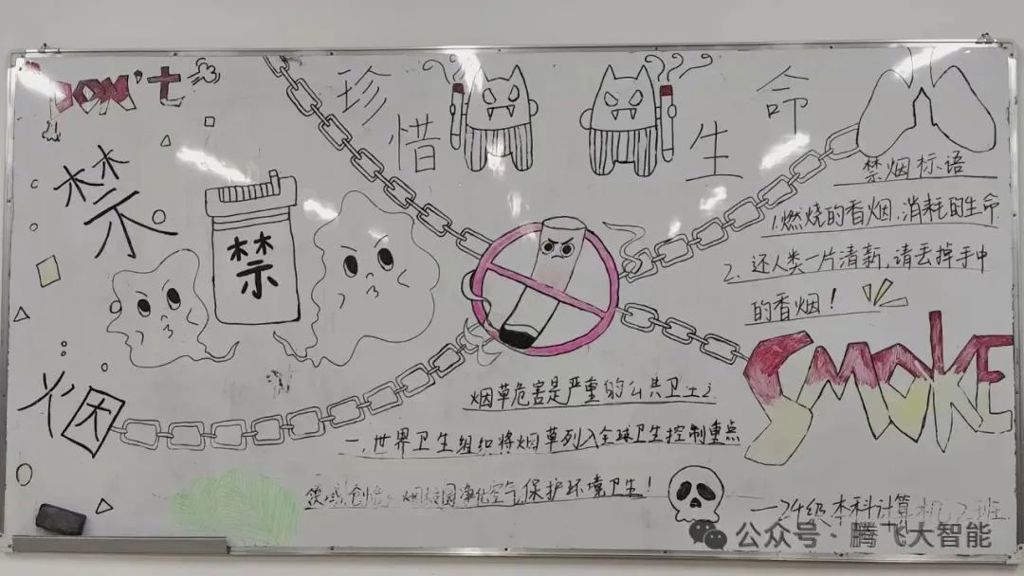 DON'T
珍惜生命
禁烟
禁
禁烟标语
1.燃烧的香烟.消耗的生命
2.还人类一片清新.请丢掉手中
的香烟!
SMOKE
烟草危害是严重的公共卫生之
一.世界卫生组织将烟草列入全球卫生控制重点
净化空气保护环境卫生!
—24级本科计算机班
公众号·腾飞大智能